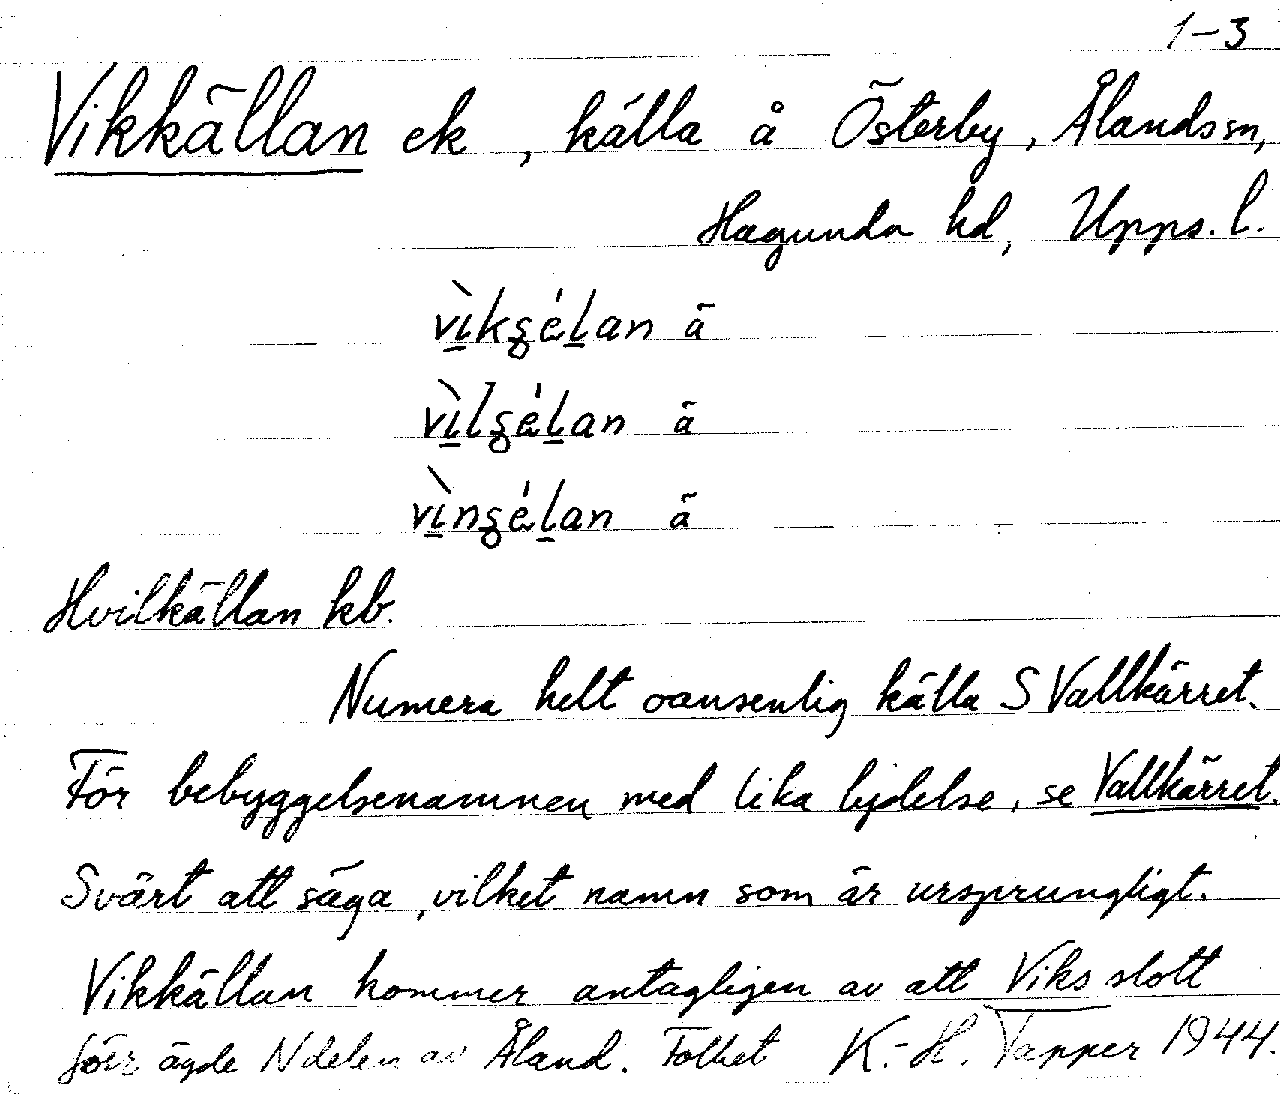 1-3
Vikkällan ek, källa å Österby, Ålands sn,
Hagunda hd, Upps. l.
vìkʂélan ā
vìlʂélan ā
vìnʂélan ā
Hvilkällan kb.
Numera helt oansenlig källa S Vallkärret.
För bebyggelsenamnen med lika lydelse, se Vallkärret.
Svårt att säga, vilket namn som är ursprungligt.
Vikkällan kommer antagligen av att Viks slott
förr ägde N delen av Åland. Folket K.-H. Tapper 1944.